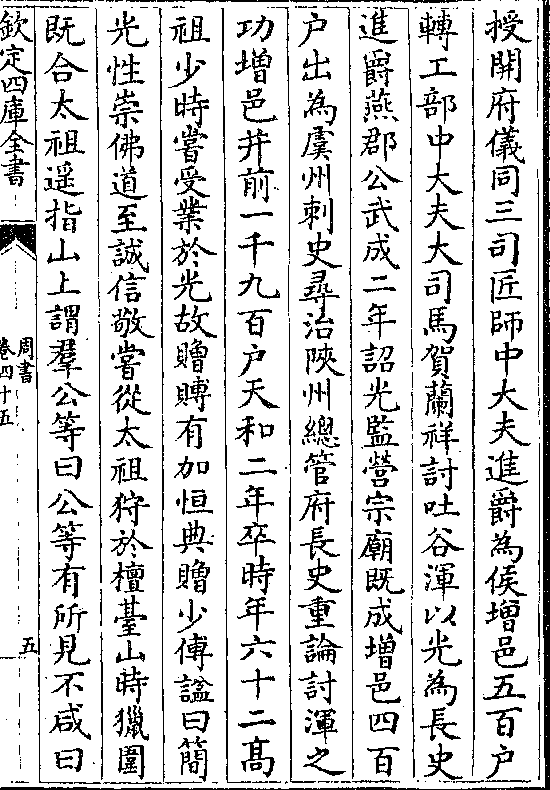 授開府儀同三司匠師中大夫進爵為侯增邑五百户
轉工部中大夫大司馬賀蘭祥討吐谷渾以光為長史
進爵燕郡公武成二年詔光監營宗廟既成增邑四百
户出為虞州刺史尋治陜州總管府長史重論討渾之
功增邑并前一千九百户天和二年卒時年六十二髙
祖少時嘗受業於光故贈賻有加恒典贈少傅諡曰簡
光性崇佛道至誠信敬嘗從太祖狩於檀臺山時獵圍
既合太祖遥指山上謂羣公等曰公等有所見不咸曰
欽定四庫全書
周書
卷四十五
五